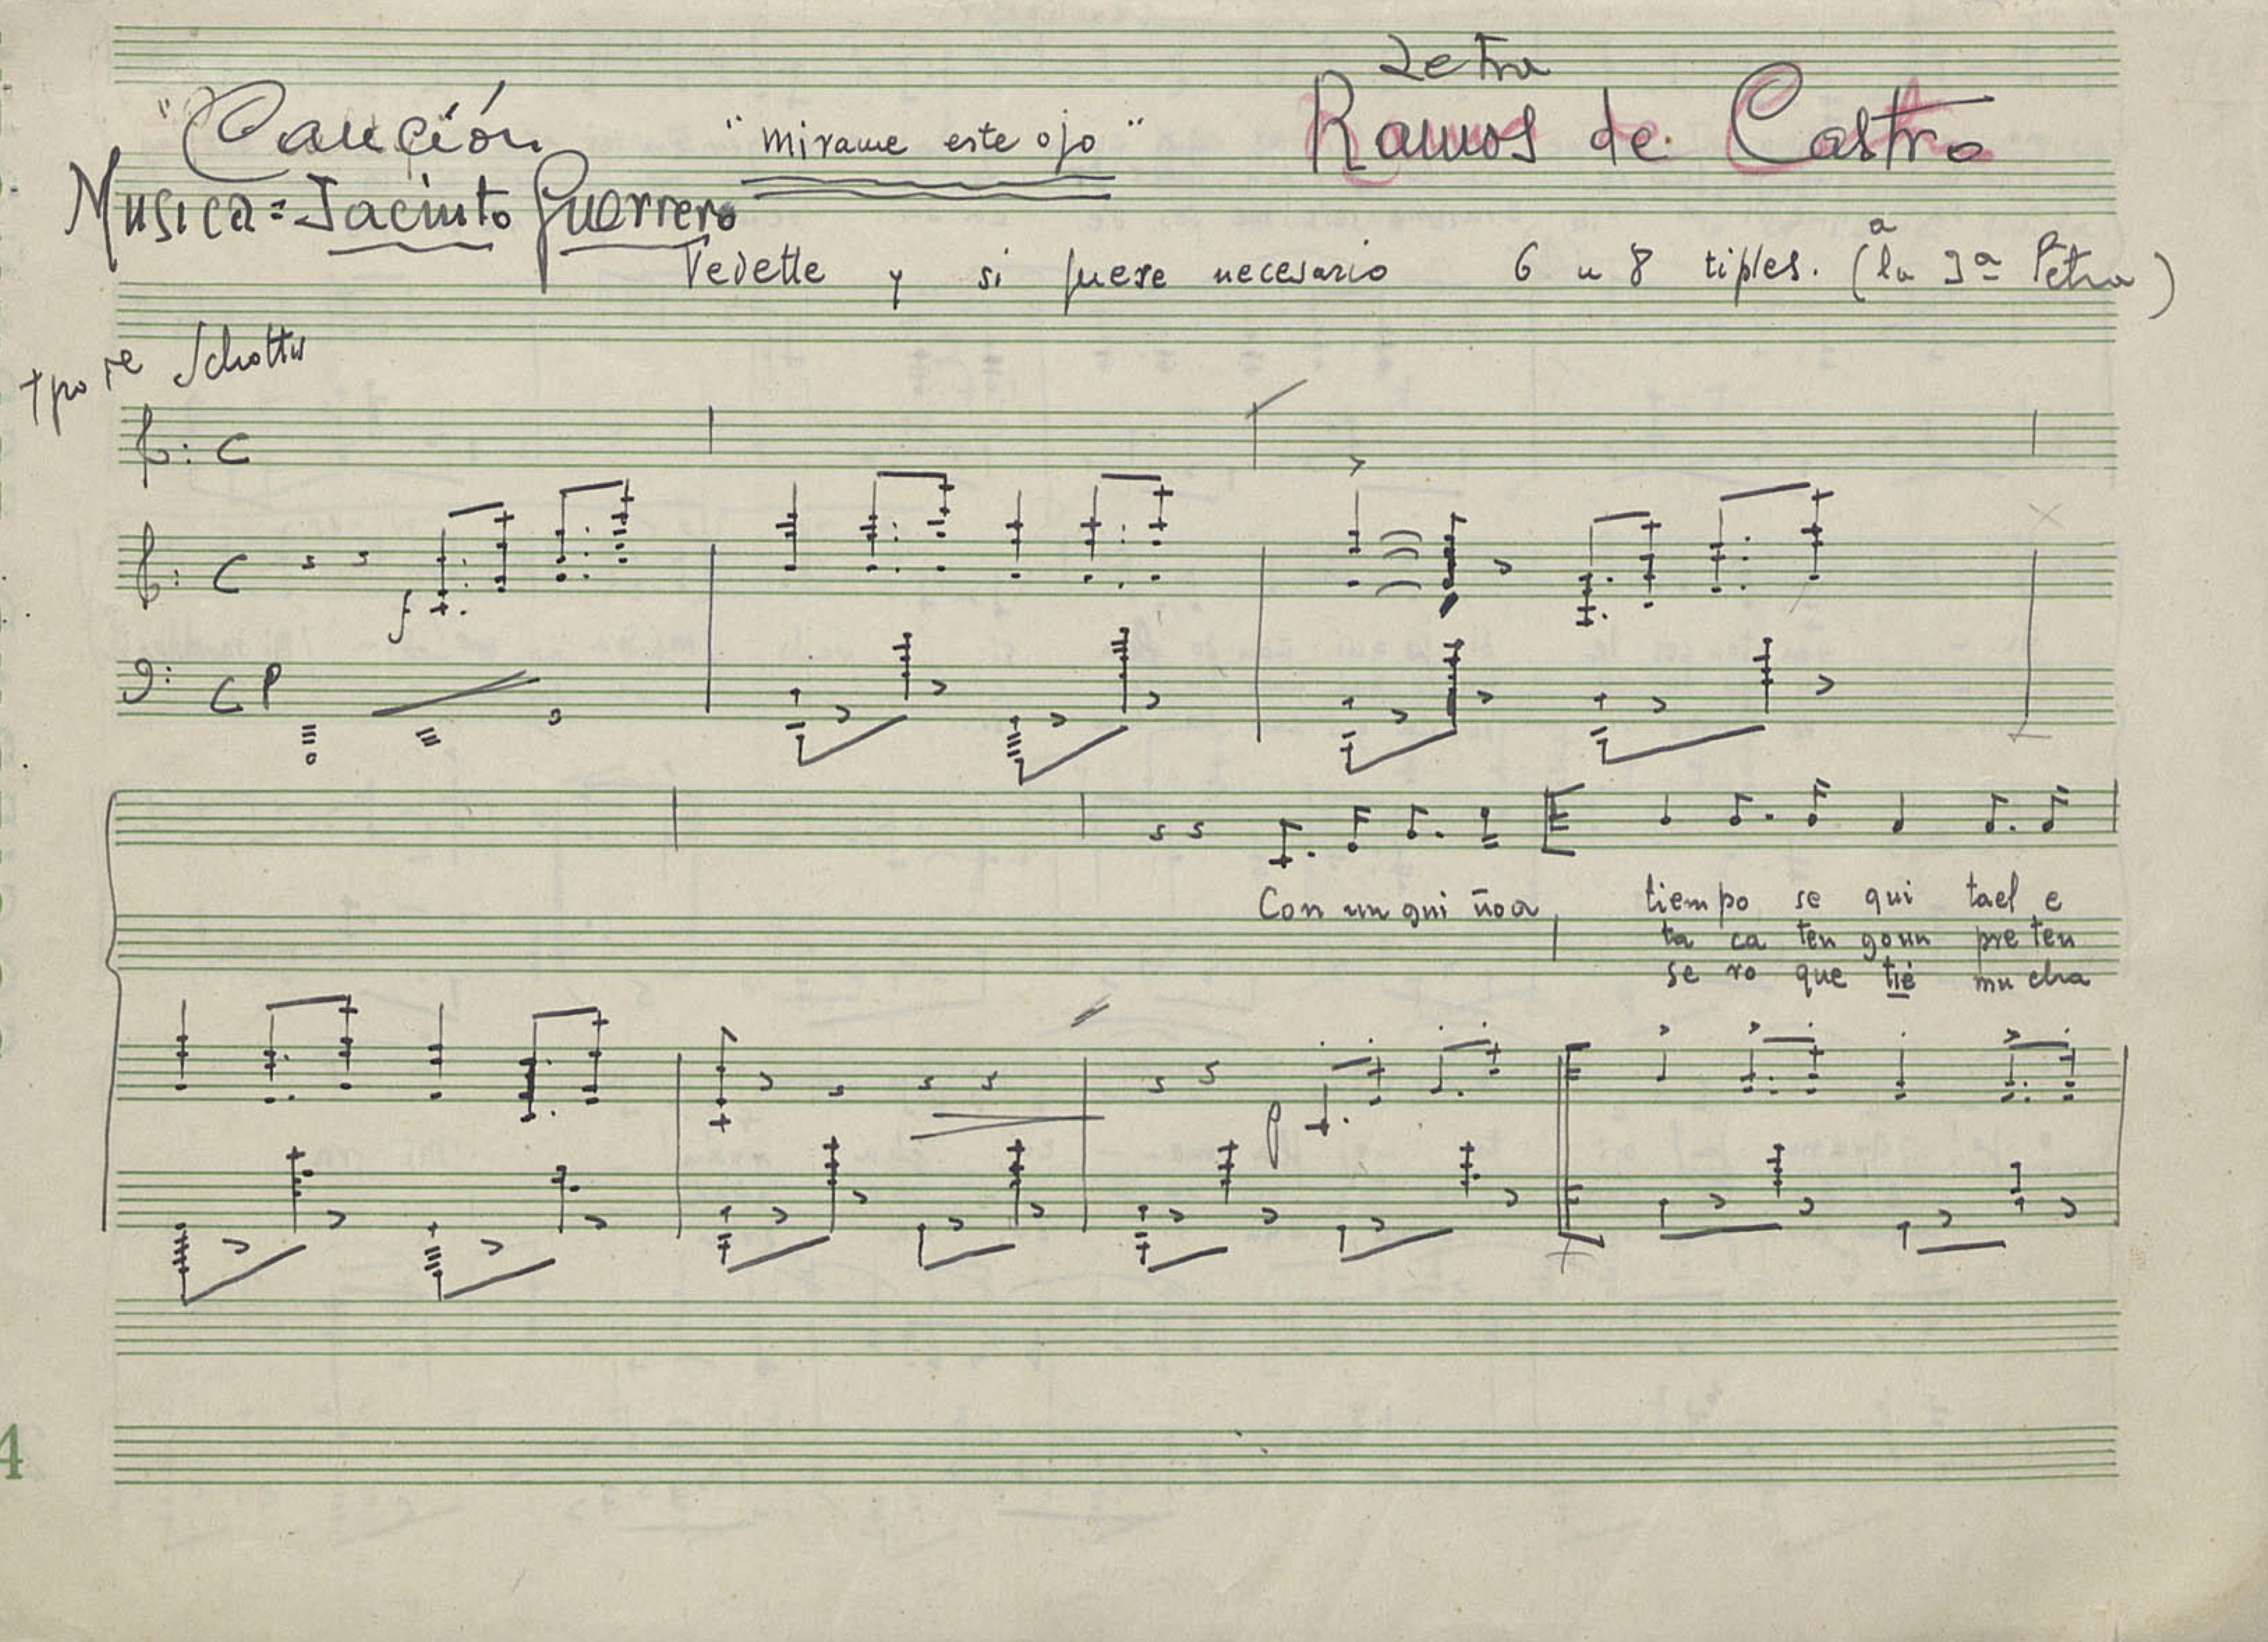 Letra
"Canción "mirame este ojo" Ramos de Castro
Musica = Jacinto Guerrero
Vedette y si fuese necesario 6 u 8 tiples. (a la Petra)
tpo de Schottis
f
p
Con un gui ño a tiempo se qui tael e
ta ca ten goun pre ten
se ro que tié mu cha
p
4